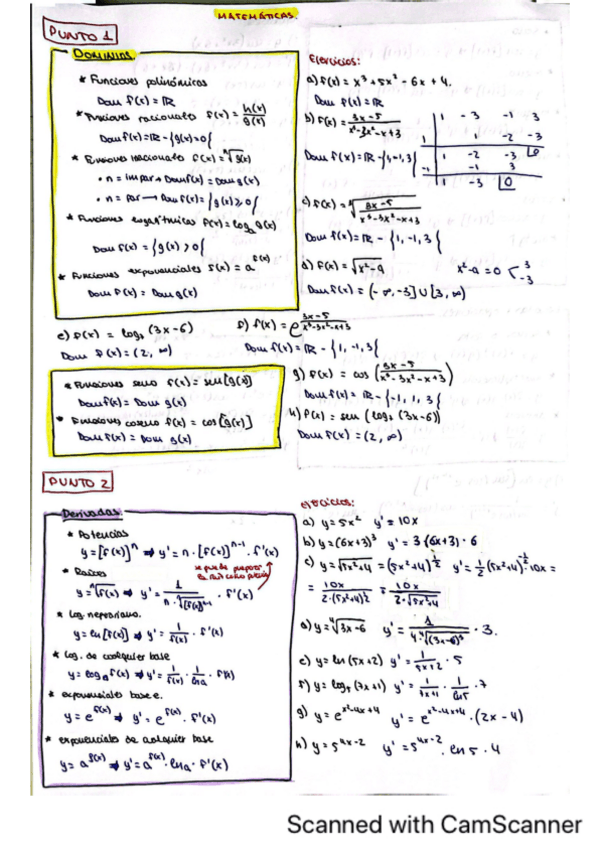 MATEMÁTICAS.
PUNTO 1
DOMINIOS
* Funciones polinómicas
Dom f(x) = ℝ
* Funciones racionales f(x) = h(x)/g(x)
Dom f(x) = ℝ - {g(x)=0}
* Funciones irracionales f(x) = ⁿ√g(x)
• n = impar → Dom f(x) = Dom g(x)
• n = par → Dom f(x) = {g(x) ≥ 0}
* Funciones logarítmicas f(x) = logₐ g(x)
Dom f(x) = {g(x) > 0}
* Funciones exponenciales f(x) = a^f(x)
Dom f(x) = Dom g(x)
Ejercicios:
a) f(x) = x³ + 5x² - 6x + 4.
Dom f(x) = ℝ
b) f(x) = (3x-5)/(x³-3x²-x+3)
Dom f(x) = ℝ - {1,-1,3}
1 -3 -1 3
1 1 -2 -3
1 -2 -3 0
-1 -1 3
1 -3 0
c) f(x) = √((3x-5)/(x³-3x²-x+3))
Dom f(x) = ℝ - {1, -1, 3}
d) f(x) = √(x²-9) x²-9=0 < 3 -3
Dom f(x) = (-∞, -3] ∪ [3, ∞)
e) f(x) = log₂ (3x-6)
Dom f(x) = (2, ∞)
f) f(x) = e^((3x-5)/(x³-3x²-x+3))
Dom f(x) = ℝ - {1, -1, 3}
* Funciones seno f(x) = sen[g(x)]
Dom f(x) = Dom g(x)
* Funciones coseno f(x) = cos[g(x)]
Dom f(x) = Dom g(x)
g) f(x) = cos ((3x-5)/(x³-3x²-x+3))
Dom f(x) = ℝ - {-1, 1, 3}
h) f(x) = sen (log₂ (3x-6))
Dom f(x) = (2, ∞)
PUNTO 2
Derivadas
* Potencias
y = [f(x)]ⁿ ⇒ y' = n · [f(x)]ⁿ⁻¹ · f'(x)
* Raíces
se puede preparar
y = ⁿ√f(x) ⇒ y' = 1/(n · ⁿ√[f(x)]ⁿ⁻¹) · f'(x)
* Log. neperiano.
y = ln[f(x)] ⇒ y' = 1/f(x) · f'(x)
* Log. de cualquier base
y = logₐ f(x) ⇒ y' = 1/f(x) · 1/lna · f'(x)
* exponenciales base e.
y = e^f(x) ⇒ y' = e^f(x) · f'(x)
* exponenciales de cualquier base
y = a^f(x) ⇒ y' = a^f(x) · lna · f'(x)
ejercicios:
a) y = 5x² y' = 10x
b) y = (6x+3)³ y' = 3(6x+3) · 6
c) y = √(5x²+4) = (5x²+4)^½ y' = ½(5x²+4)^-½ 10x =
= 10x/(2·(5x²+4)½) = 10x/(2·√(5x²+4)
d) y = ⁴√(3x-6) y' = 1/(4·⁴√(3x-6)³) · 3.
e) y = ln(5x+2) y' = 1/(5x+2) · 5
f) y = log₅ (7x+1) y' = 1/(7x+1) · 1/ln5 · 7
g) y = e^(x²-4x+4) y' = e^(x²-4x+4) · (2x-4)
h) y = 5^(4x-2) y' = 5^(4x-2) · ln5 · 4
Scanned with CamScanner